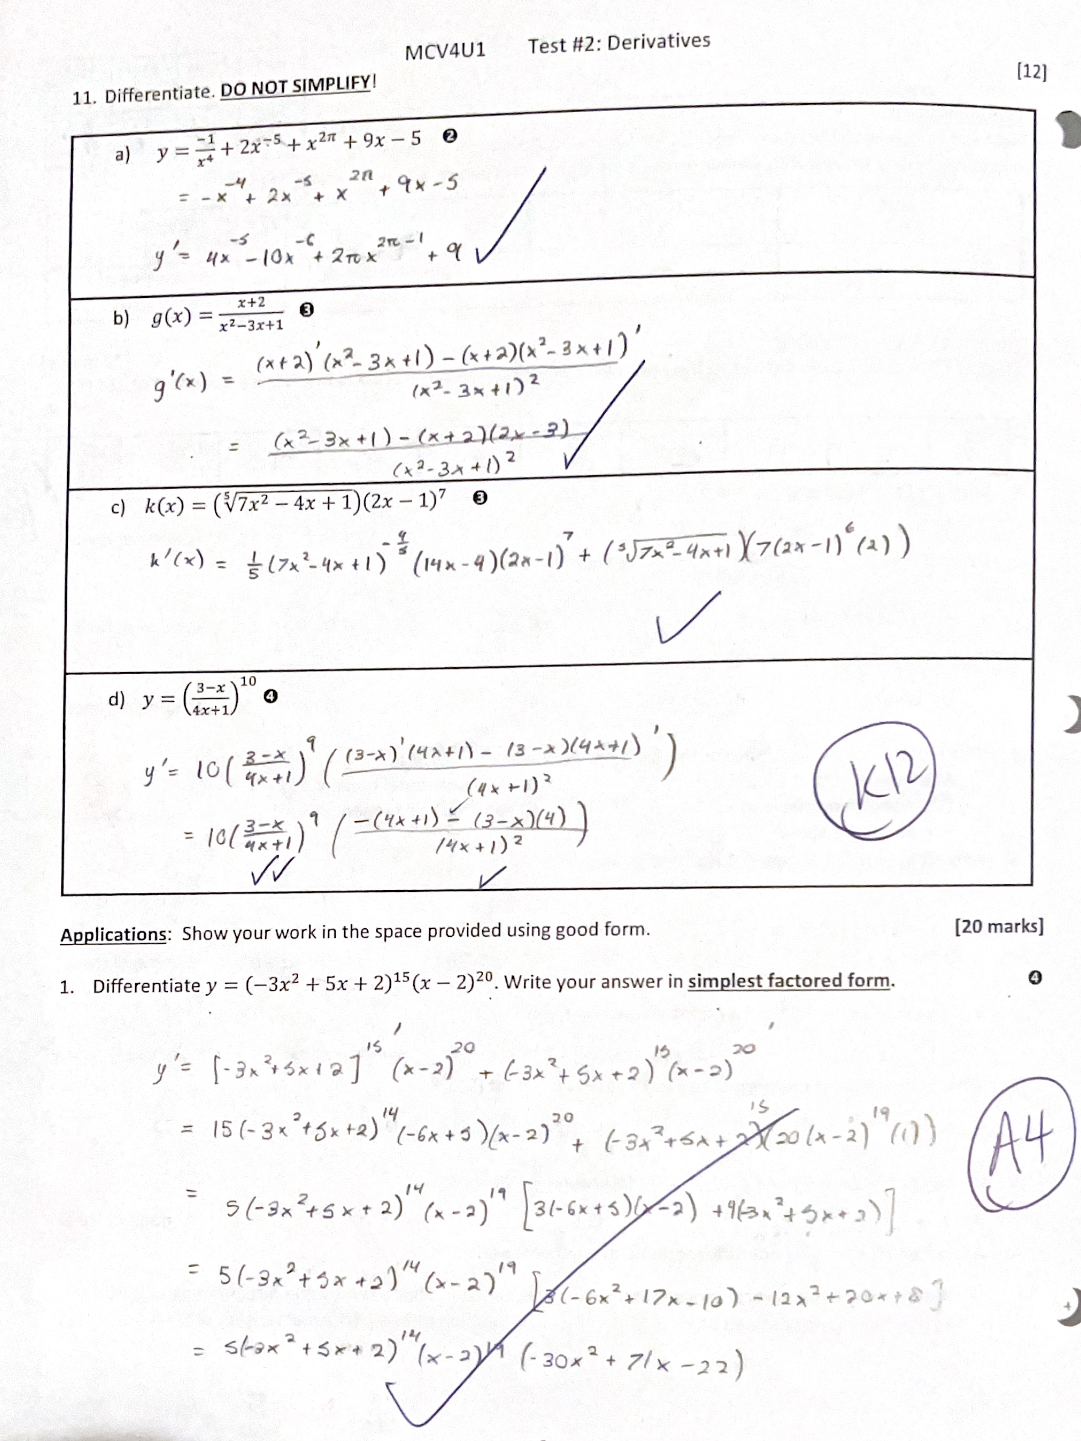 MCV4U1 Test #2: Derivatives
[12]
11. Differentiate. DO NOT SIMPLIFY!
a) y = -1/x⁴ + 2x⁻⁵ + x^(2π) + 9x − 5 ❷
= -x⁻⁴ + 2x⁻⁵ + x^(2π) + 9x - 5
y' = 4x⁻⁵ - 10x⁻⁶ + 2πx^(2π-1) + 9
b) g(x) = (x+2)/(x²−3x+1) ❸
g'(x) = ((x+2)'(x²-3x+1) - (x+2)(x²-3x+1)')/(x²-3x+1)²
= ((x²-3x+1) - (x+2)(2x-3))/(x²-3x+1)²
c) k(x) = (⁵√(7x² − 4x + 1))(2x − 1)⁷ ❸
k'(x) = 1/5 (7x²-4x+1)^(-4/5) (14x-4)(2x-1)⁷ + (⁵√(7x²-4x+1))(7(2x-1)⁶(2))
d) y = ((3−x)/(4x+1))¹⁰ ❹
y' = 10((3-x)/(4x+1))⁹ (((3-x)'(4x+1) - (3-x)(4x+1)')/(4x+1)²)
= 10((3-x)/(4x+1))⁹ ((-(4x+1) - (3-x)(4))/(4x+1)²)
K12
Applications: Show your work in the space provided using good form. [20 marks]
1. Differentiate y = (−3x² + 5x + 2)¹⁵(x − 2)²⁰. Write your answer in simplest factored form. ❹
y' = [-3x²+5x+2]¹⁵' (x-2)²⁰ + (-3x²+5x+2)¹⁵(x-2)²⁰'
= 15(-3x²+5x+2)¹⁴(-6x+5)(x-2)²⁰ + (-3x²+5x+2)¹⁵(20(x-2)¹⁹(1))
A4
= 5(-3x²+5x+2)¹⁴(x-2)¹⁹ [3(-6x+5)(x-2) + 4(-3x²+5x+2)]
= 5(-3x²+5x+2)¹⁴(x-2)¹⁹ [3(-6x²+17x-10) - 12x²+20x+8]
= 5(-3x²+5x+2)¹⁴(x-2)¹⁹ (-30x²+71x-22)